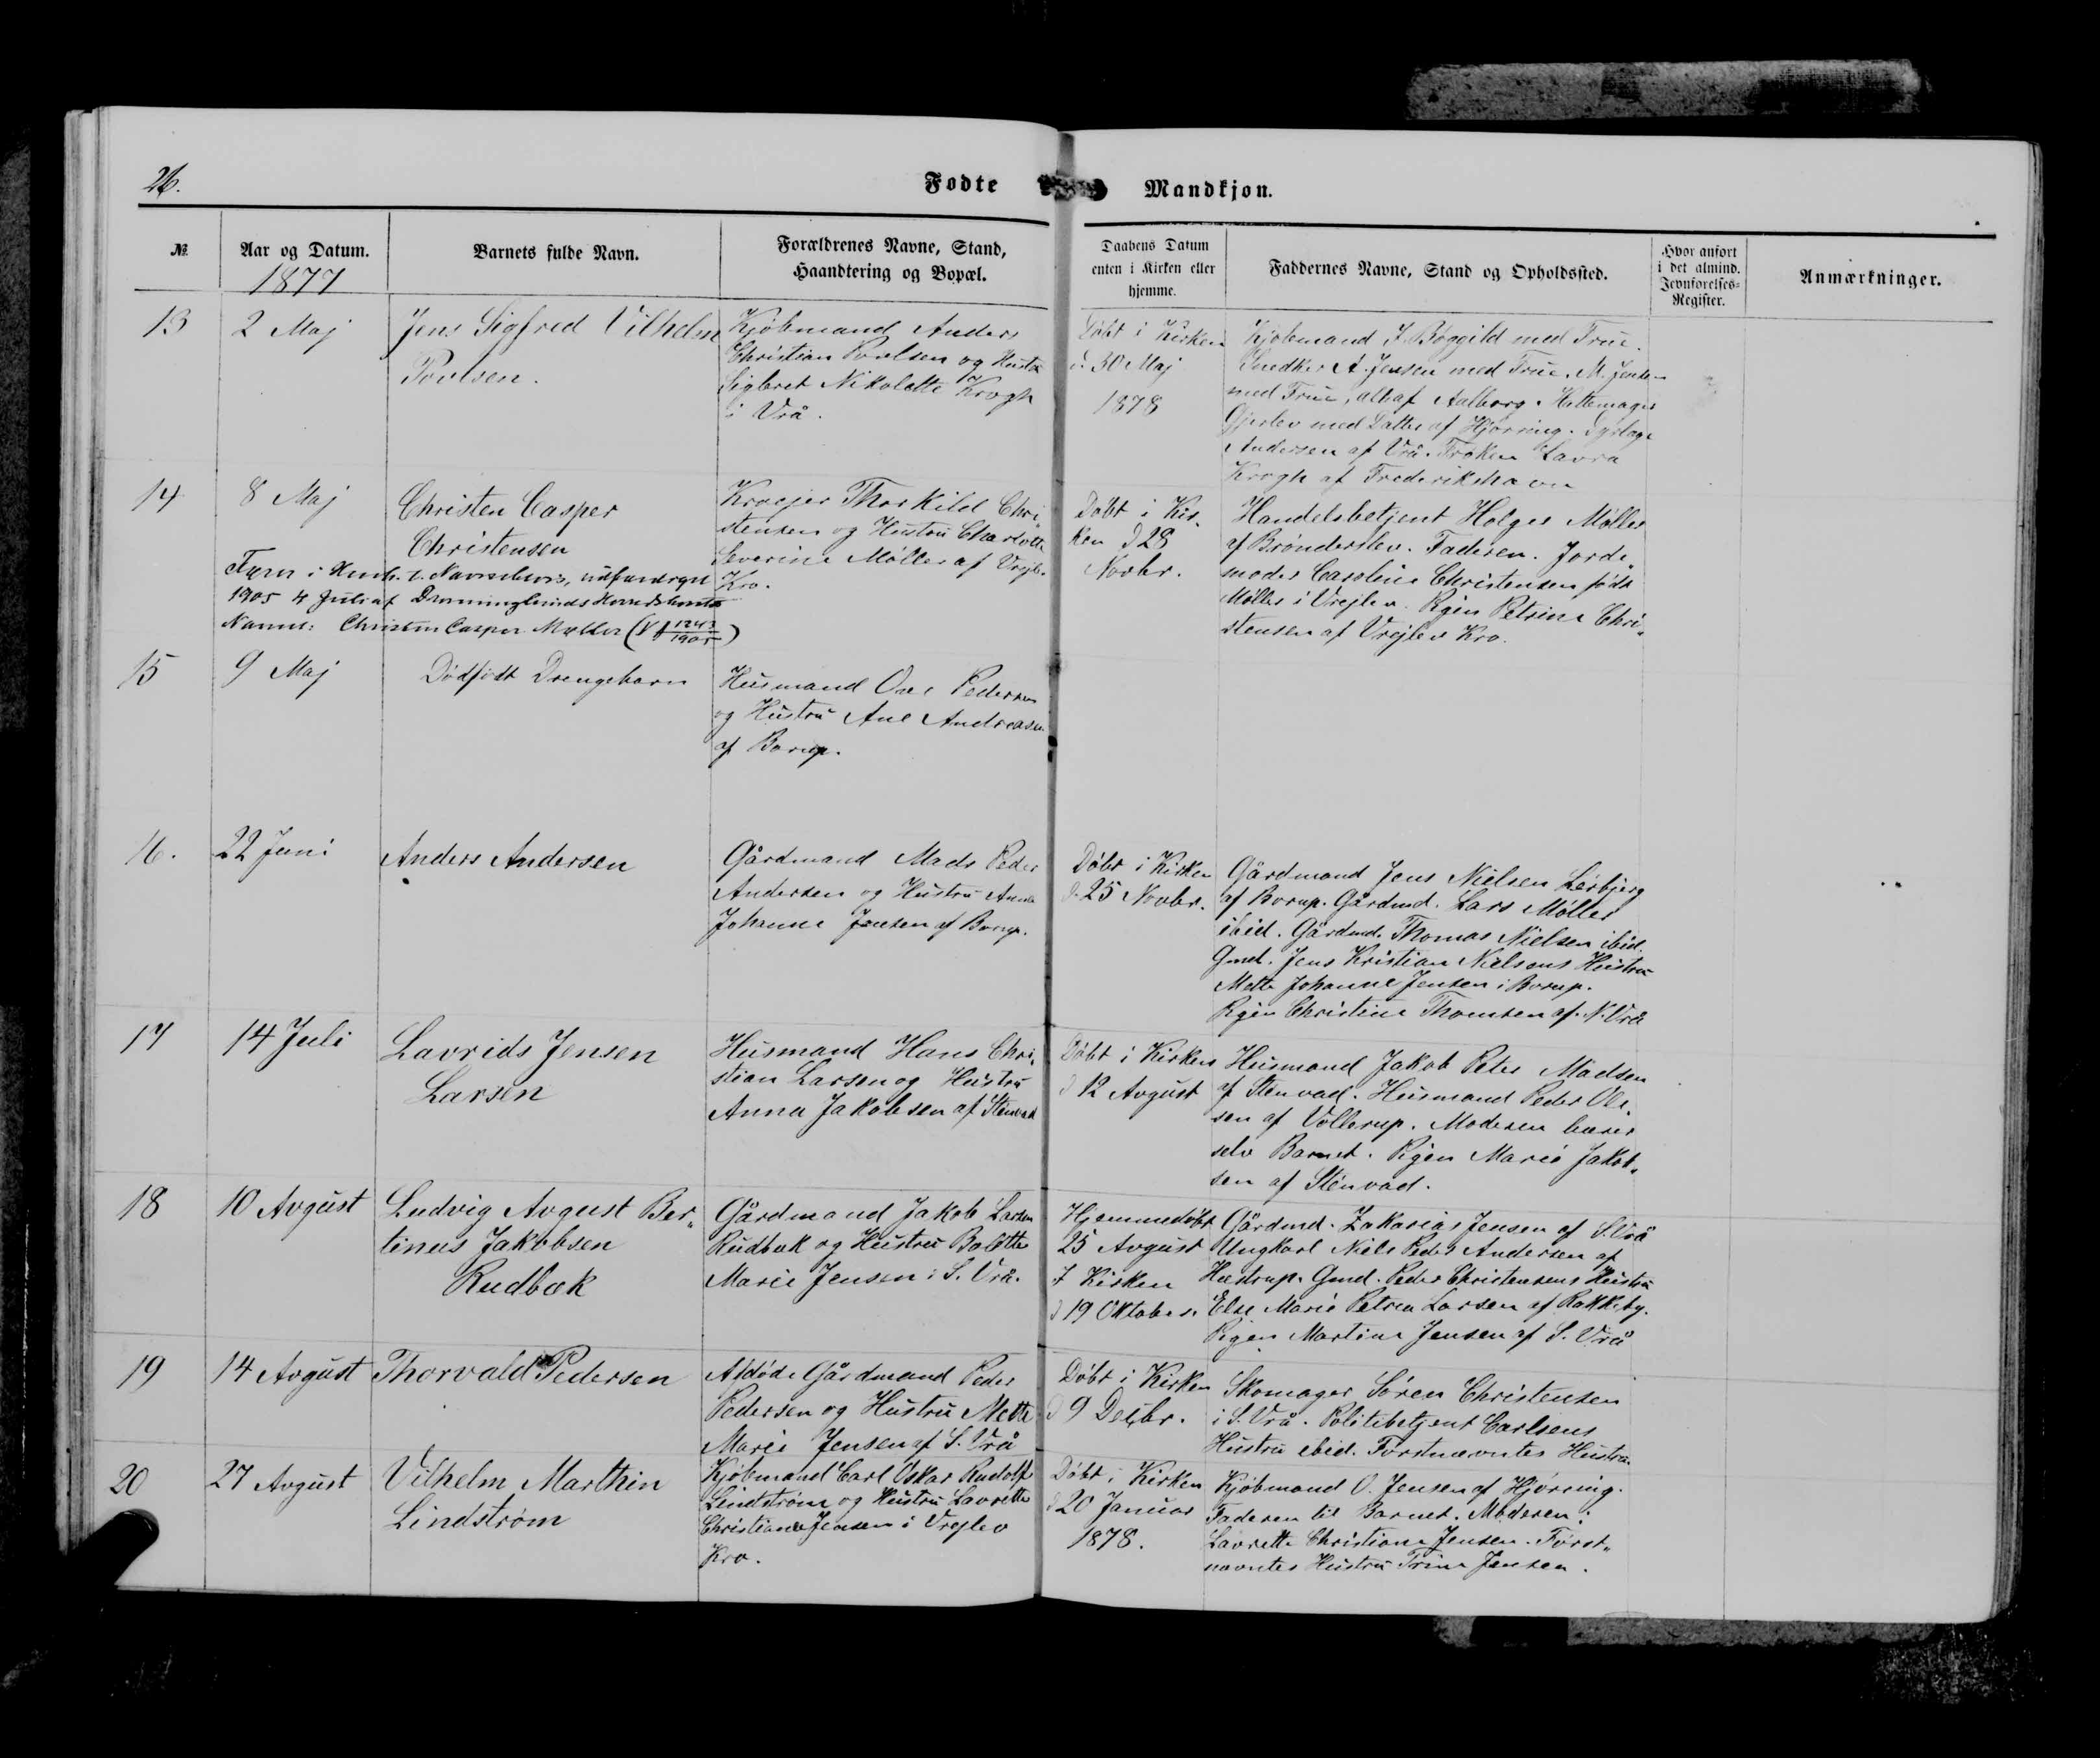 26.
Fodte
Mandkjon.
№
Aar og Datum.
1877
Barnets fulde Navn.
Forældrenes Navne, Stand,
Haandtering og Bopæl.
Daabens Datum
enten i Kirken eller
hjemme.
Faddernes Navne, Stand og Opholdssted.
Hvor anfort
i det almind.
Jevnforelses-
Register.
Anmærkninger.
13
2 Maj
Jens Sigfred Vilhelm
Povlsen.
Kjøbmand Anders
Christian Povlsen og Hustru
Sigbret Nikolette Krogh
i Vrå.
Døbt i Kirken
d. 30 Maj
1878
Kjøbmand J. Bøggild med Frue.
Snedker A. Jensen med Frue. M. Jensen
med Frue, alle af Aalborg. Hattemager
Gjerlev med Datter af Hjørring. Dyrlæge
Andersen af Vrå. Frøken Lavra
Krogh af Frederikshavn
14
8 Maj
Christen Casper
Christensen
Kroejer Thorkild Chri„
stensen og Hustru Charlotte
Severine Møller af Vrejlev
Kro.
Døbt i Kir„
ken d 28
Novbr.
Handelsbetjent Holger Møller
af Brønderslev. Faderen. Jorde„
moder Caroline Christensen født
Møller i Vrejlev. Pigen Petrine Chri„
stensen af Vrejlev Kro.
Faaet i Henh. t. Navnebevis, udfærdiget
1905 4 Juli af Dronninglunds Herredskontor
Navnet: Christen Casper Møller (V J 1243/1905)
15
9 Maj
Dødfødt Drengebarn
Husmand Ove Pedersen
og Hustru Ane Andreasen
af Borup.
16.
22 Juni
Anders Andersen
Gårdmand Mads Peder
Andersen og Hustru Anna
Johanne Jensen af Borup.
Døbt i Kirken
d. 25 Novbr.
Gårdmand Jens Nielsen Lørbjerg
af Borup. Gårdmd. Lars Møller
ibid. Gårdmd. Thomas Nielsen ibid.
Gmd. Jens Kristian Nielsens Hustru
Mette Johanne Jensen i Borup.
Pigen Christine Thomsen af N. Vrå
17
14 Juli
Lavrids Jensen
Larsen
Husmand Hans Chri„
stian Larsen og Hustru
Anna Jakobsen af Stenvad
Døbt i Kirken
d 12 Avgust
Husmand Jakob Peter Madsen
af Stenvad. Husmand Peder Ole„
sen af Vollerup. Moderen bærer
selv Barnet. Pigen Marie Jakob„
sen af Stenvad.
18
10 Avgust
Ludvig Avgust Ber„
tinus Jakobsen
Rudbæk
Gårdmand Jakob Larsen
Rudbæk og Hustru Bolette
Marie Jensen i S. Vrå.
Hjemmedøbt
25 Avgust
I Kirken
d 19 Oktober.
Gårdmd. Zakarias Jensen af S. Vrå
Ungkarl Niels Peder Andersen af
Hæstrup. Gmd. Peder Christensens Hustru
Else Marie Petrea Larsen af Rakkeby.
Pigen Martine Jensen af S. Vrå
19
14 Avgust
Thorvald Pedersen
Afdøde Gårdmand Peder
Pedersen og Hustru Mette
Marie Jensen af S. Vrå
Døbt i Kirken
d 9 Decbr.
Skomager Sören Christensen
i S. Vrå. Politibetjent Carlsens
Hustru ibid. Førstnævntes Hustru
20
27 Avgust
Vilhelm Marthin
Lindstrøm
Kjøbmand Carl Oskar Rudolf
Lindstrøm og Hustru Lavrette
Christiane Jensen i Vrejlev
Kro.
Døbt i Kirken
d 20 Januar
1878.
Kjøbmand O. Jensen af Hjørring.
Faderen til Barnet. Moderen:
Lavrette Christiane Jensen. Først„
nævntes Hustru Trine Jensen.